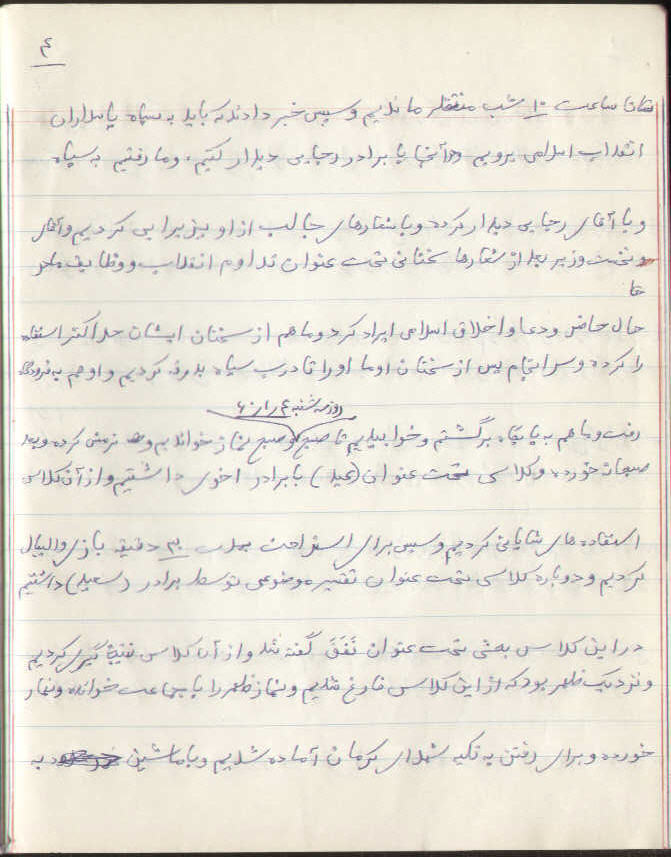 ۴
تا ساعت ۱۰ شب منتظر ماندیم و سپس خبر دادند که باید به سپاه پاسداران
انقلاب اسلامی برویم و در آنجا با برادر رجایی دیدار کنیم، و ما رفتیم به سپاه
و با آقای رجایی دیدار کرده و با شعارهای جالب از او پذیرایی کردیم و آقای
نخست وزیر بعد از شعارها سخنانی تحت عنوان تداوم انقلاب و وظایف ما در
حال حاضر و دعا و اخلاق اسلامی ایراد کرد و ما هم از سخنان ایشان حداکثر استفاده
را کرده و سرانجام پس از سخنان او ما او را تا درب سپاه بدرقه کردیم و او هم به فرودگاه
روز سه شنبه
رفت و ما هم به پایگاه برگشتیم و خوابیدیم تا صبح و صبح نماز خواندیم و نرمش کرده و بعد
صبحانه خورده و کلاسی تحت عنوان (عید) با برادر اخوی داشتیم و از آن کلاس
استفاده های شایانی کردیم و سپس برای استراحت بمدت ۲۰ دقیقه بازی والیبال
کردیم و دوباره کلاسی تحت عنوان تفسیر موضوعی توسط برادر (سعید) داشتیم
در این کلاس بحثی تحت عنوان نَفَقَ گفته شد و از آن کلاس نتیجه گیری کردیم
و نزدیک ظهر بود که از این کلاس فارغ شدیم و نماز ظهر را با جماعت خوانده و نهار
خورده و برای رفتن به تکیه شهدای کرمان آماده شدیم و با ماشین به